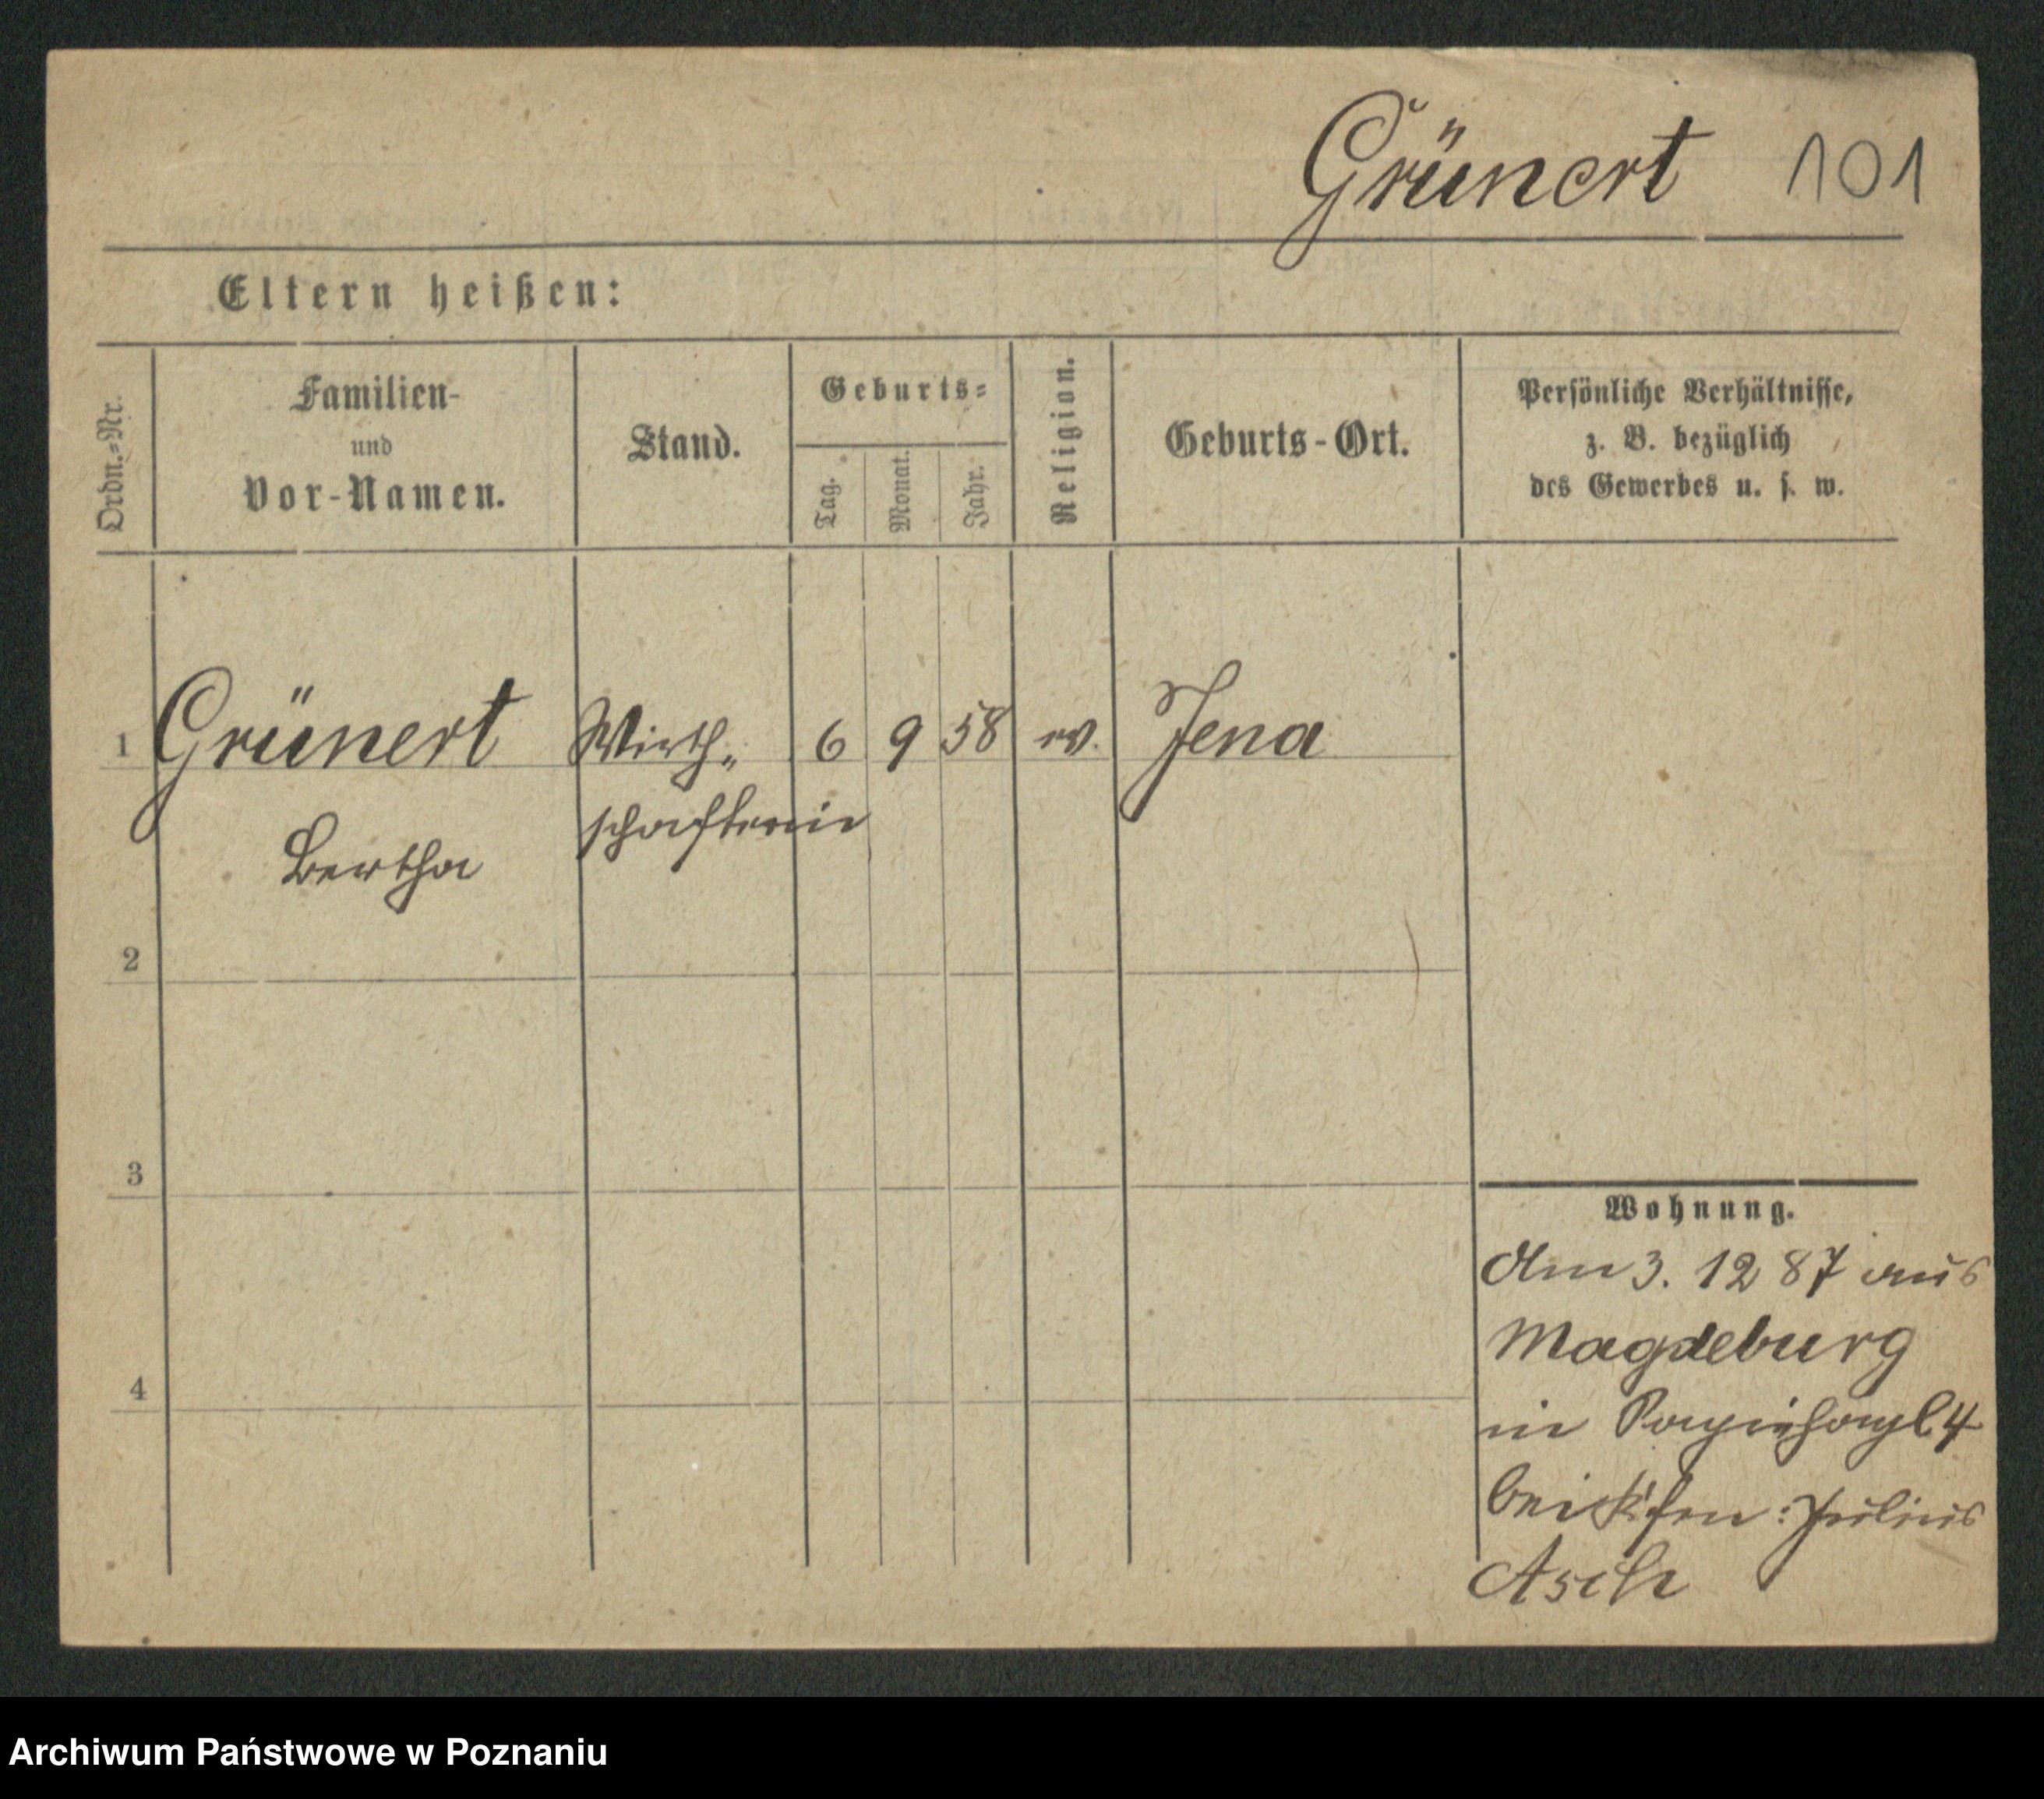 Grünert 101
Eltern heißen:
Ordn.-Nr.
Familien-
und
Vor-Namen.
Stand.
Geburts-
Tag.
Monat.
Jahr.
Religion.
Geburts-Ort.
Persönliche Verhältnisse,
z. B. bezüglich
des Gewerbes u. s. w.
1 Grünert Wirth„ 6 9 58 ev. Jena
schafterin
Bertha
2
3
4
Wohnung.
Am 3. 12 87 aus
Magdeburg
in 4
bei Kfm: Julius
Asch
Archiwum Państwowe w Poznaniu